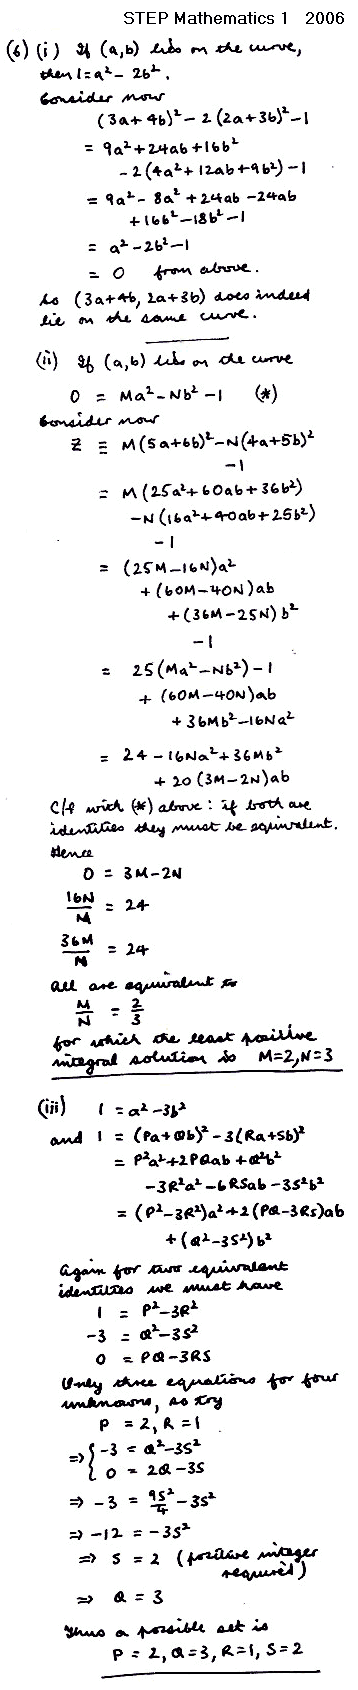 STEP Mathematics 1 2006
(6) (i) If (a,b) lies on the curve,
then 1 = a² - 2b².
Consider now
(3a+4b)² - 2(2a+3b)² - 1
= 9a² + 24ab + 16b²
- 2(4a² + 12ab + 9b²) - 1
= 9a² - 8a² + 24ab - 24ab
+ 16b² - 18b² - 1
= a² - 2b² - 1
= 0 from above.
So (3a+4b, 2a+3b) does indeed
lie on the same curve.
(ii) If (a,b) lies on the curve
0 = Ma² - Nb² - 1 (*)
Consider now
Z ≡ M(5a+6b)² - N(4a+5b)²
- 1
= M(25a² + 60ab + 36b²)
- N(16a² + 40ab + 25b²)
- 1
= (25M - 16N)a²
+ (60M - 40N)ab
+ (36M - 25N)b²
- 1
= 25(Ma² - Nb²) - 1
+ (60M - 40N)ab
+ 36Mb² - 16Na²
= 24 - 16Na² + 36Mb²
+ 20(3M - 2N)ab
C/f with (*) above: if both are
identities they must be equivalent.
Hence
0 = 3M - 2N
16N/M = 24
36M/N = 24
All are equivalent to
M/N = 2/3
for which the least positive
integral solution is M=2, N=3
(iii) 1 = a² - 3b²
and 1 = (Pa+Qb)² - 3(Ra+Sb)²
= P²a² + 2PQab + Q²b²
- 3R²a² - 6RSab - 3S²b²
= (P² - 3R²)a² + 2(PQ - 3RS)ab
+ (Q² - 3S²)b²
Again for two equivalent
identities we must have
1 = P² - 3R²
-3 = Q² - 3S²
0 = PQ - 3RS
Only three equations for four
unknowns, so try
P = 2, R = 1
⇒ { -3 = Q² - 3S²
0 = 2Q - 3S
⇒ -3 = 9S²/4 - 3S²
⇒ -12 = -3S²
⇒ S = 2 (positive integer
required)
⇒ Q = 3
Thus a possible set is
P = 2, Q = 3, R = 1, S = 2